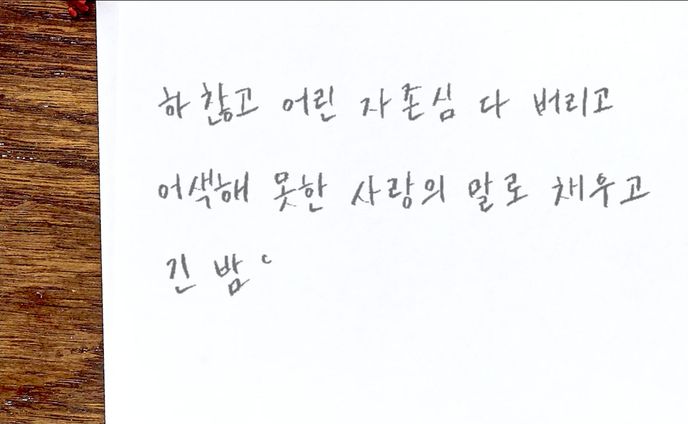 하찮고 어린 자존심 다 버리고
어색해 못한 사랑의 말로 채우고
긴 밤